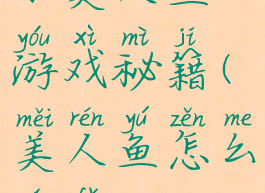 yóu xì mì jí
游戏秘籍(
měi rén yú zěn me
美人鱼怎么